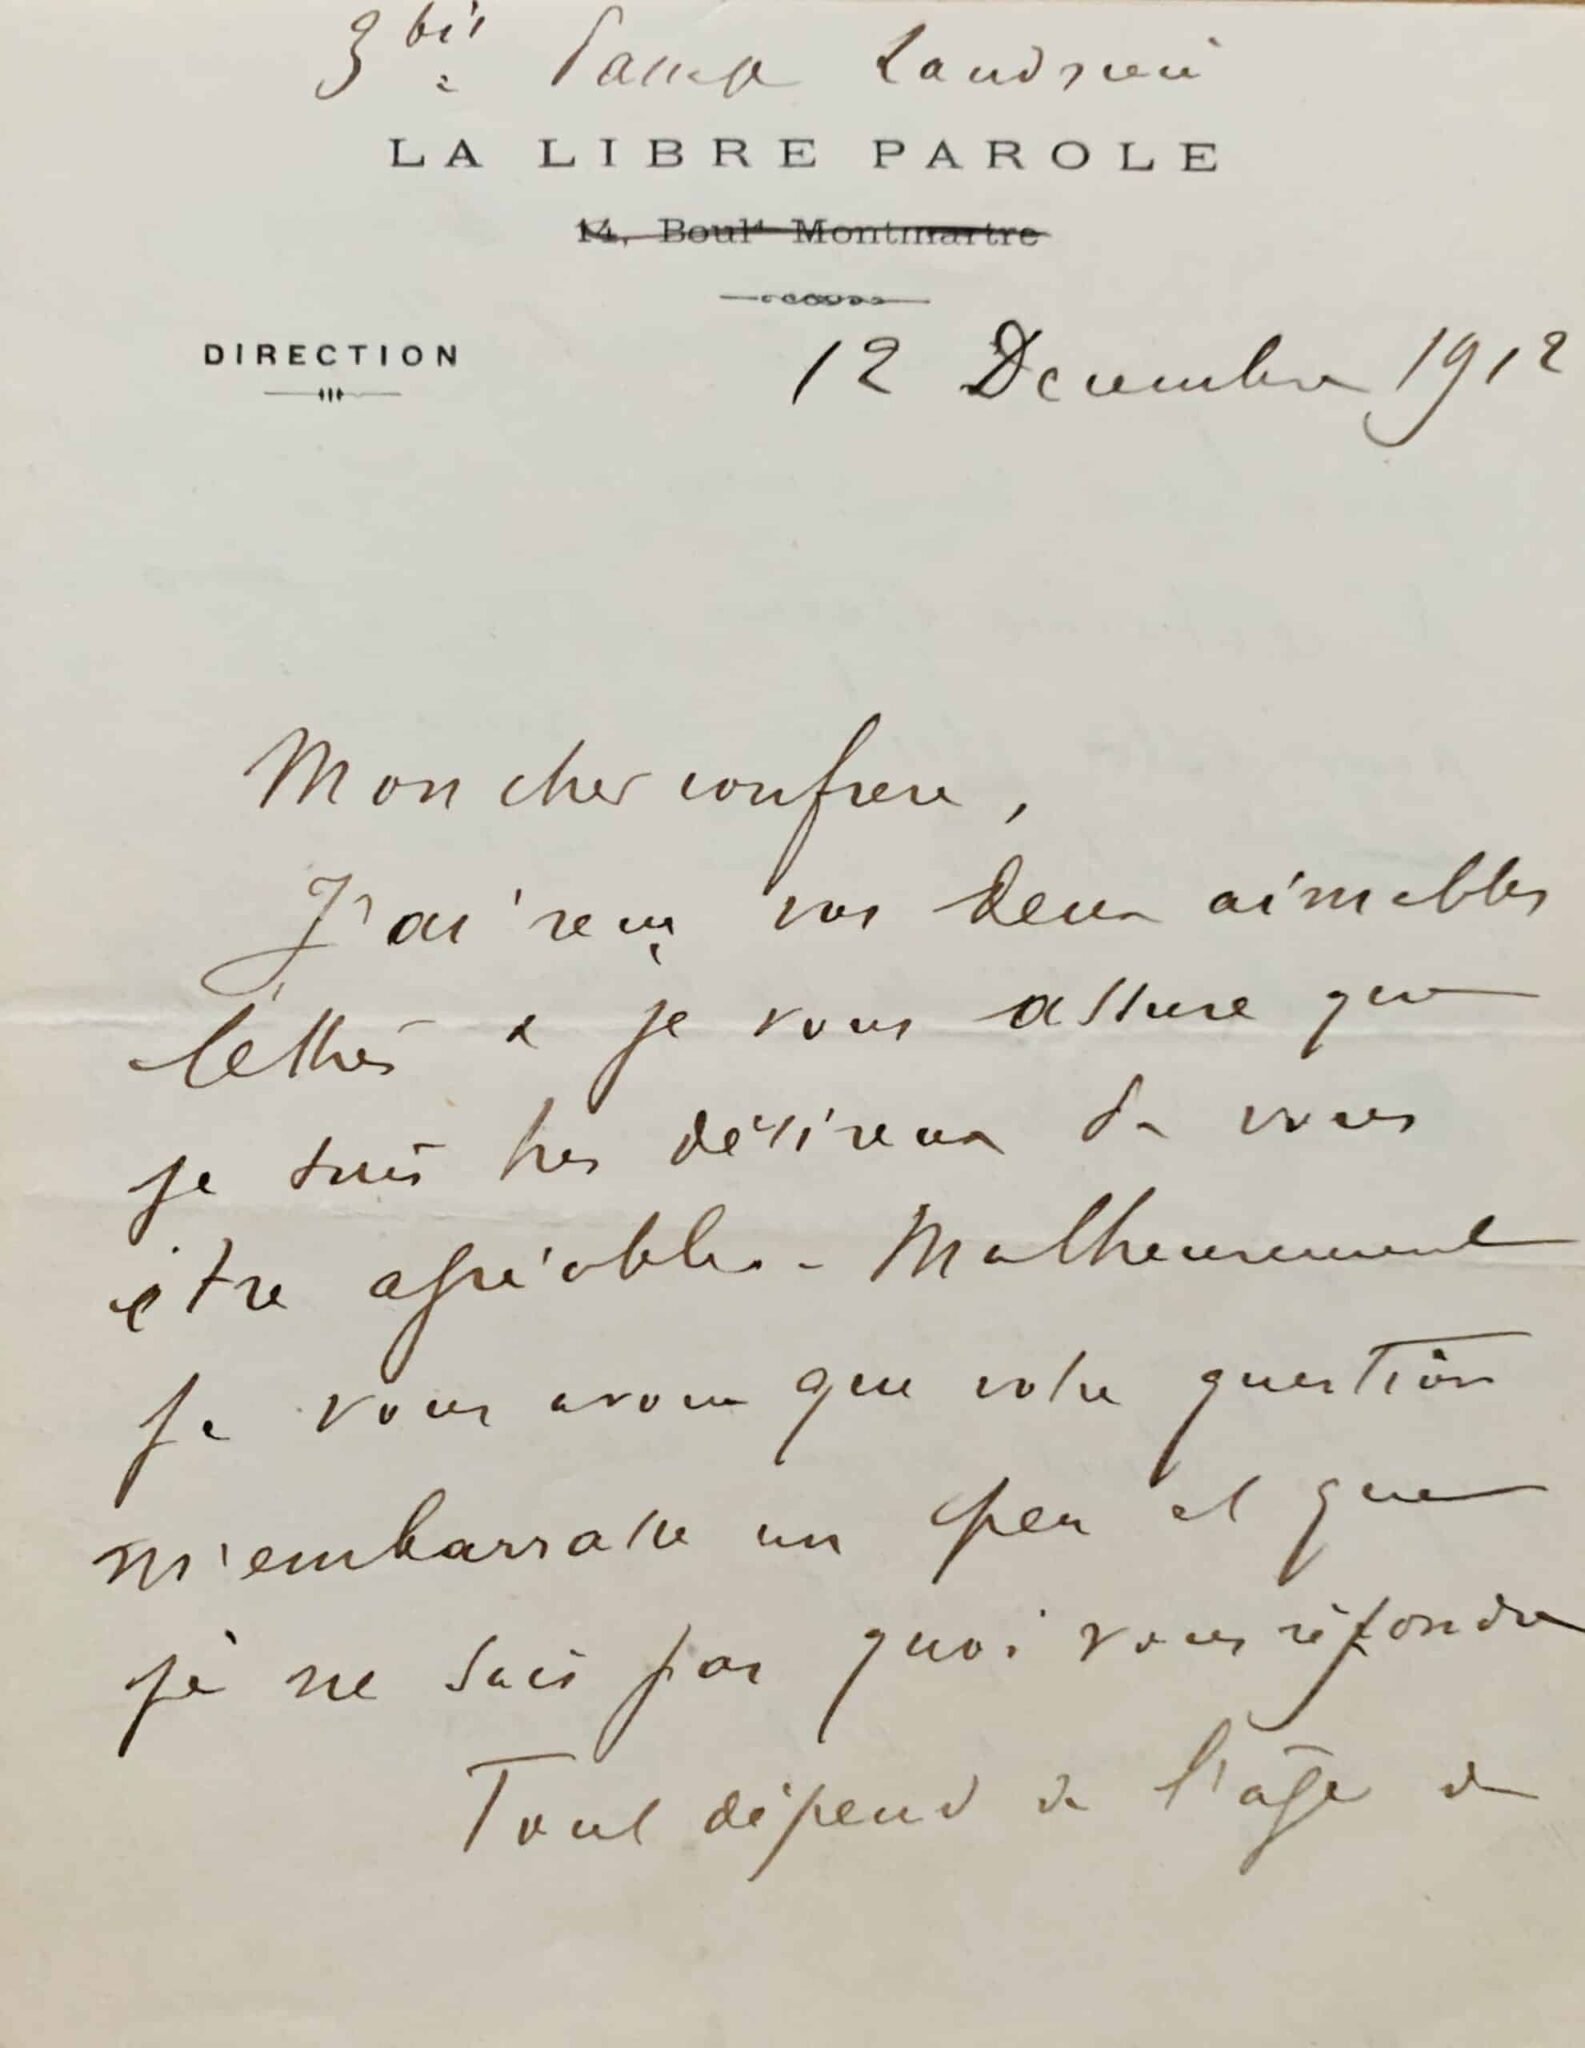 3 bis Passage Landrieu
LA LIBRE PAROLE
14, Boulᵈ Montmartre
DIRECTION
12 Decembre 1912
Mon cher confrere,
J'ai reçu vos deux aimables
lettres & je vous assure que
je suis tres désireux de vous
être agréable. - Malheureusement
je vous avoue que votre question
m'embarrasse un peu et que
je ne sais pas quoi vous répondre
Tout dépend de l'âge de